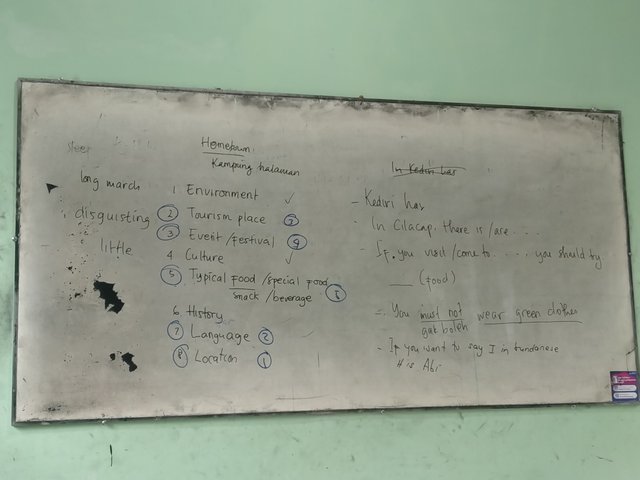 sleep
long march
disguisting
little
Hometown
Kampung halaman
1 Environment ✓
2 Tourism place 3
3 Event/festival 4
4 Culture ✓
5 Typical food/special food
snack/beverage 5
6 History
7 Language 2
8 Location 1
In Kediri has
- Kediri has
- In Cilacap, there is/are ....
- If you visit/come to ...., you should try
___ (food)
- You must not wear green clothes
gak boleh
- If you want to say I in Sundanese
it is Abi